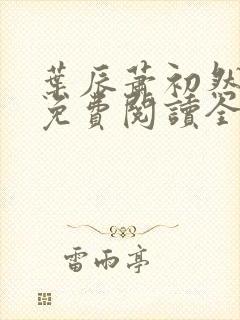 葉辰蕭初然
免費閱讀全
雷雨亭